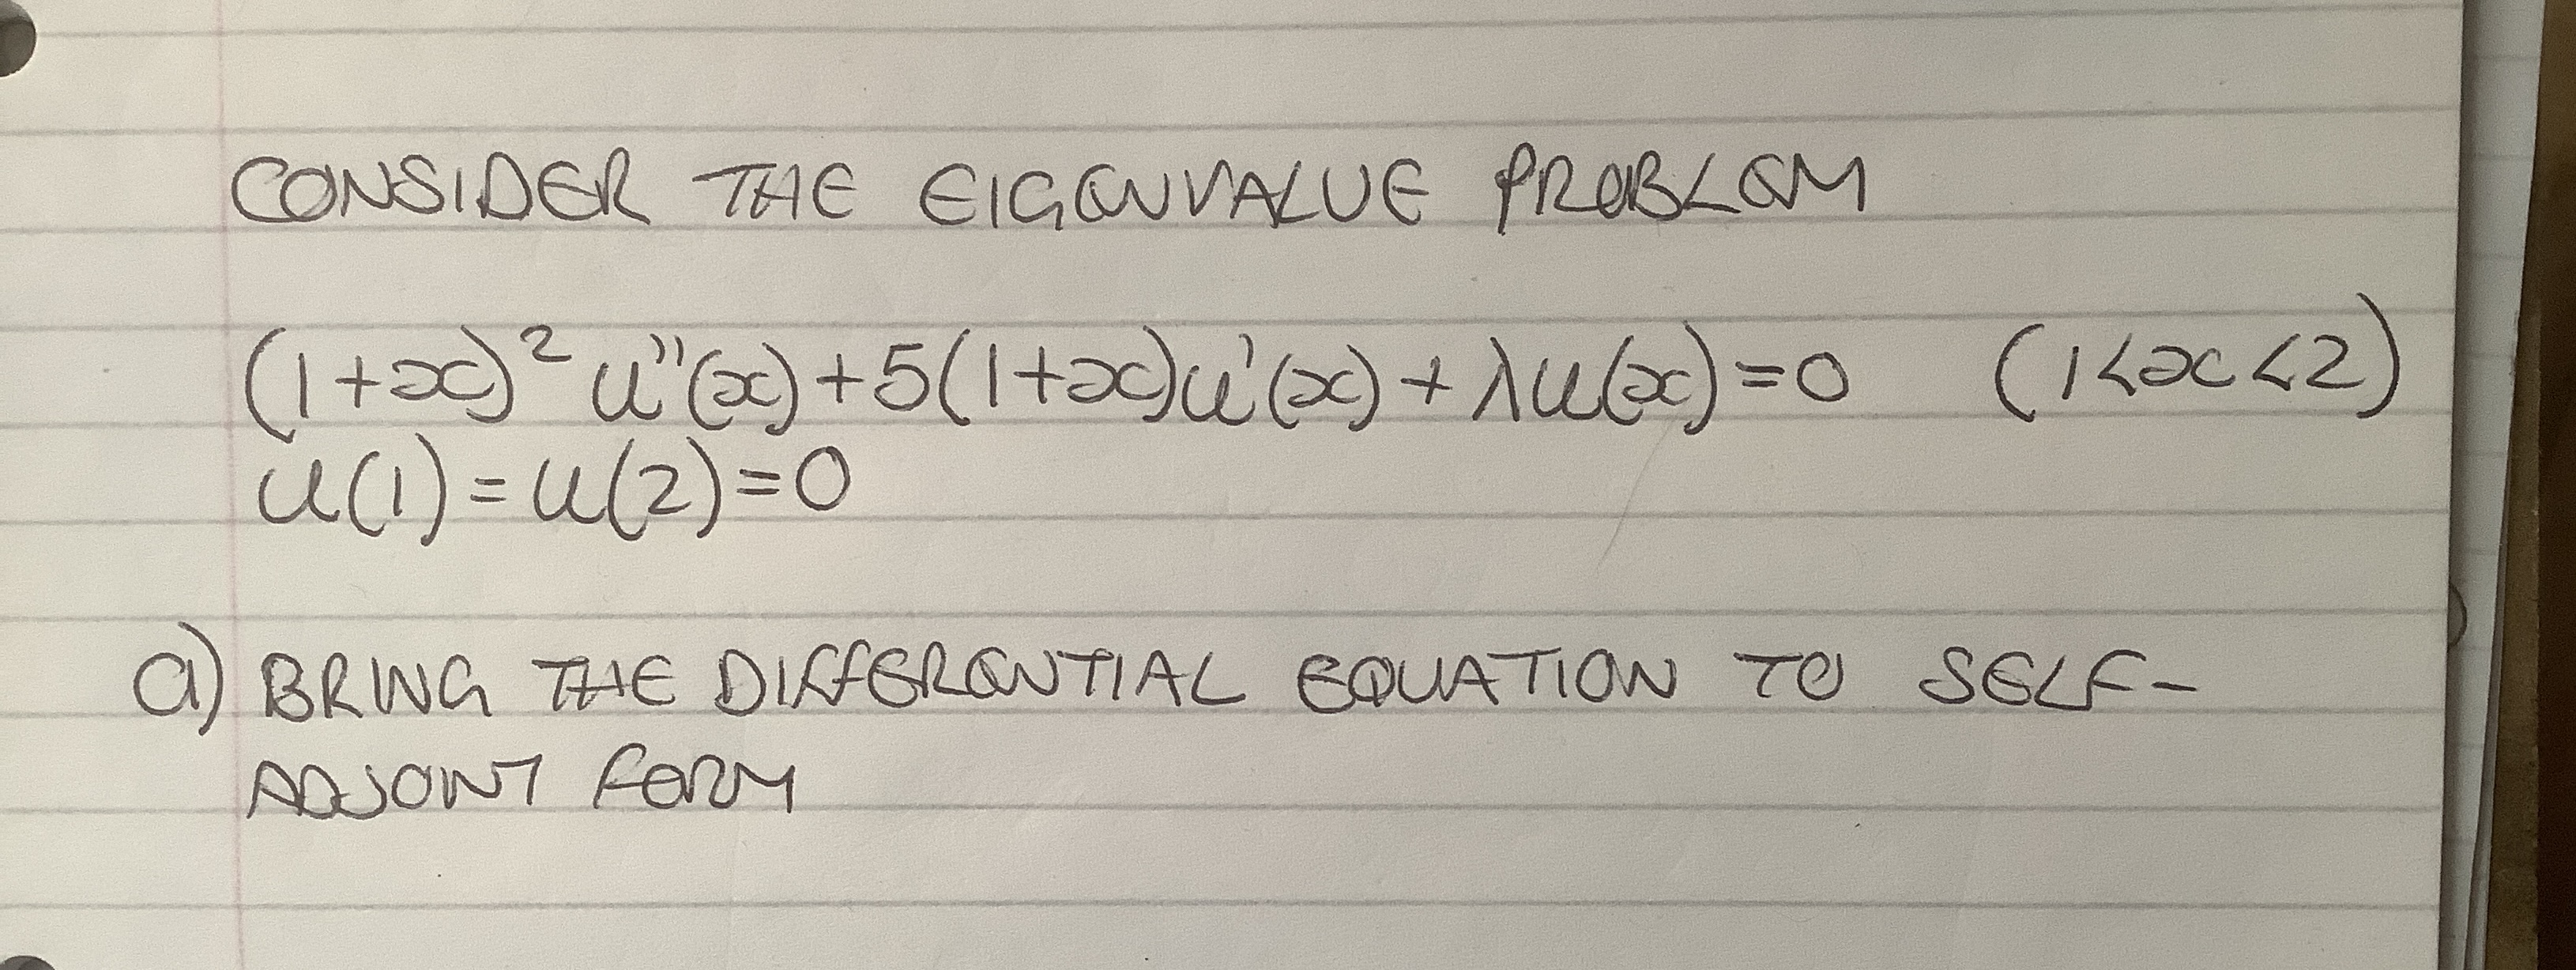 CONSIDER THE EIGENVALUE PROBLEM
(1+x)² u''(x)+5(1+x)u'(x)+λu(x)=0 (1<x<2)
u(1)=u(2)=0
a) BRING THE DIFFERENTIAL EQUATION TO SELF-
ADJOINT FORM